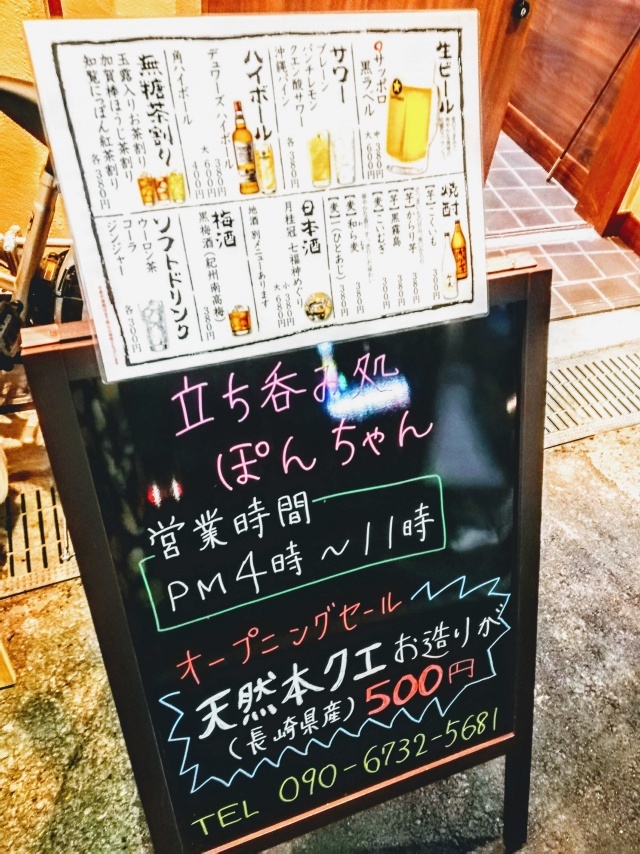 生ビール
サッポロ
黒ラベル
中 380円
大 600円
サワー
プレーン
パンチレモン
クエン酸サワー
沖縄パイン
各380円
ハイボール
デュワーズハイボール
400円
大600円
角ハイボール
無糖茶割り
玉露入りお茶割り
加賀棒ほうじ茶割り
知覧にっぽん紅茶割り
各380円
焼酎
【芋】こくいも 380円
【芋】からり芋 380円
【芋】黒霧島 380円
【麦】こいむぎ 380円
【麦】和ら麦 380円
【麦】(ひとあじ) 380円
日本酒
月桂冠 七福神めぐり
小380円
大680円
地酒 別メニューあります
梅酒
黒梅酒(紀州南高梅)
380円
ソフトドリンク
ウーロン茶
コーラ
ジンジャー
各300円
立ち呑み処
ぽんちゃん
営業時間
PM4時~11時
オープニングセール
天然本クエお造りが
(長崎県産)500円
TEL 090-6732-5681